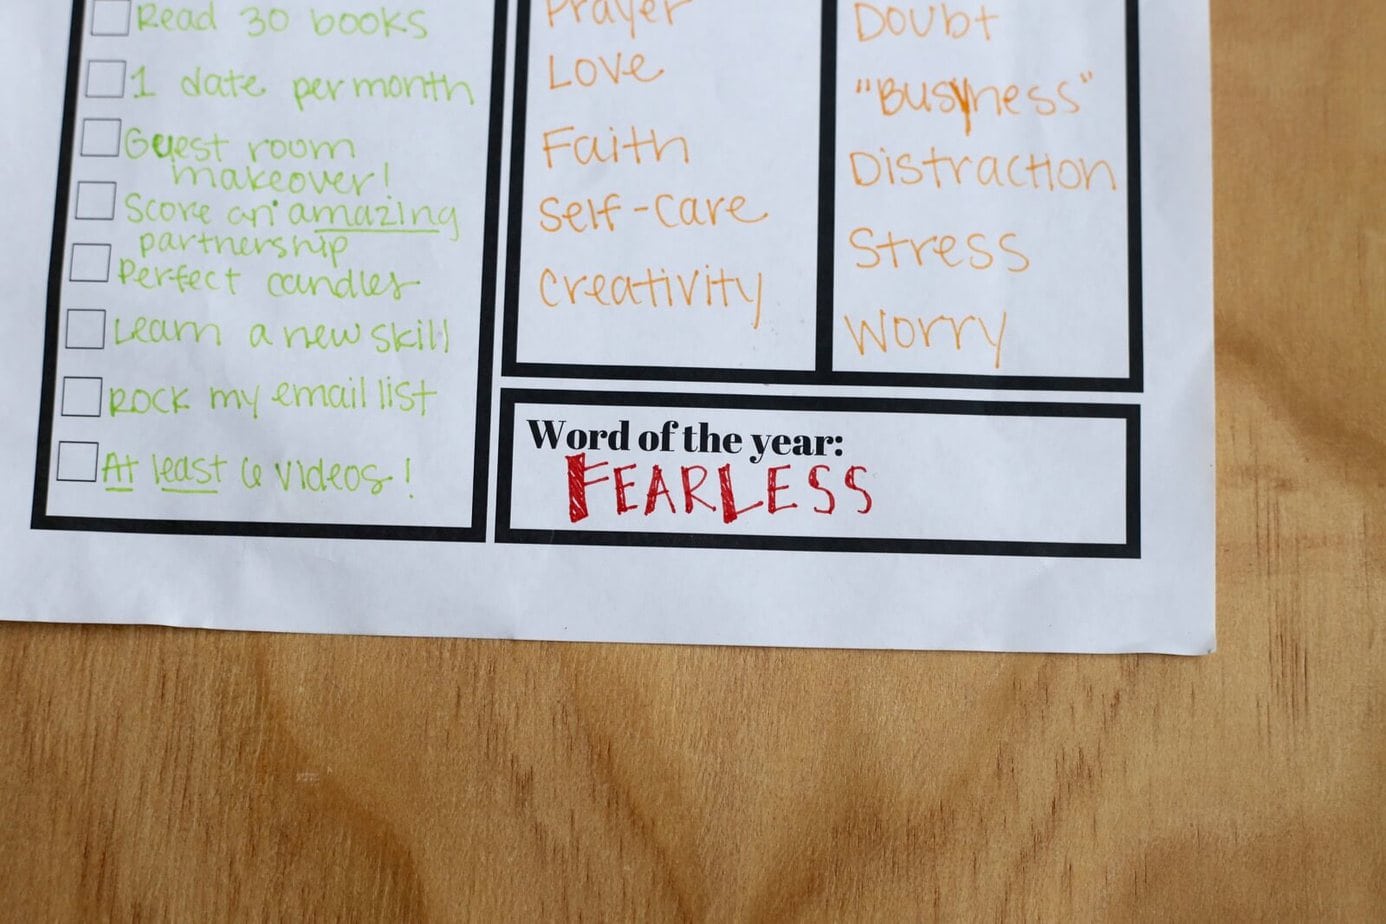 Read 30 books
1 date per month
Guest room
makeover!
Score an amazing
partnership
Perfect candles
Learn a new skill
Rock my email list
At least 6 videos!
Prayer
Love
Faith
Self-care
Creativity
Doubt
"Busyness"
Distraction
Stress
Worry
Word of the year:
FEARLESS